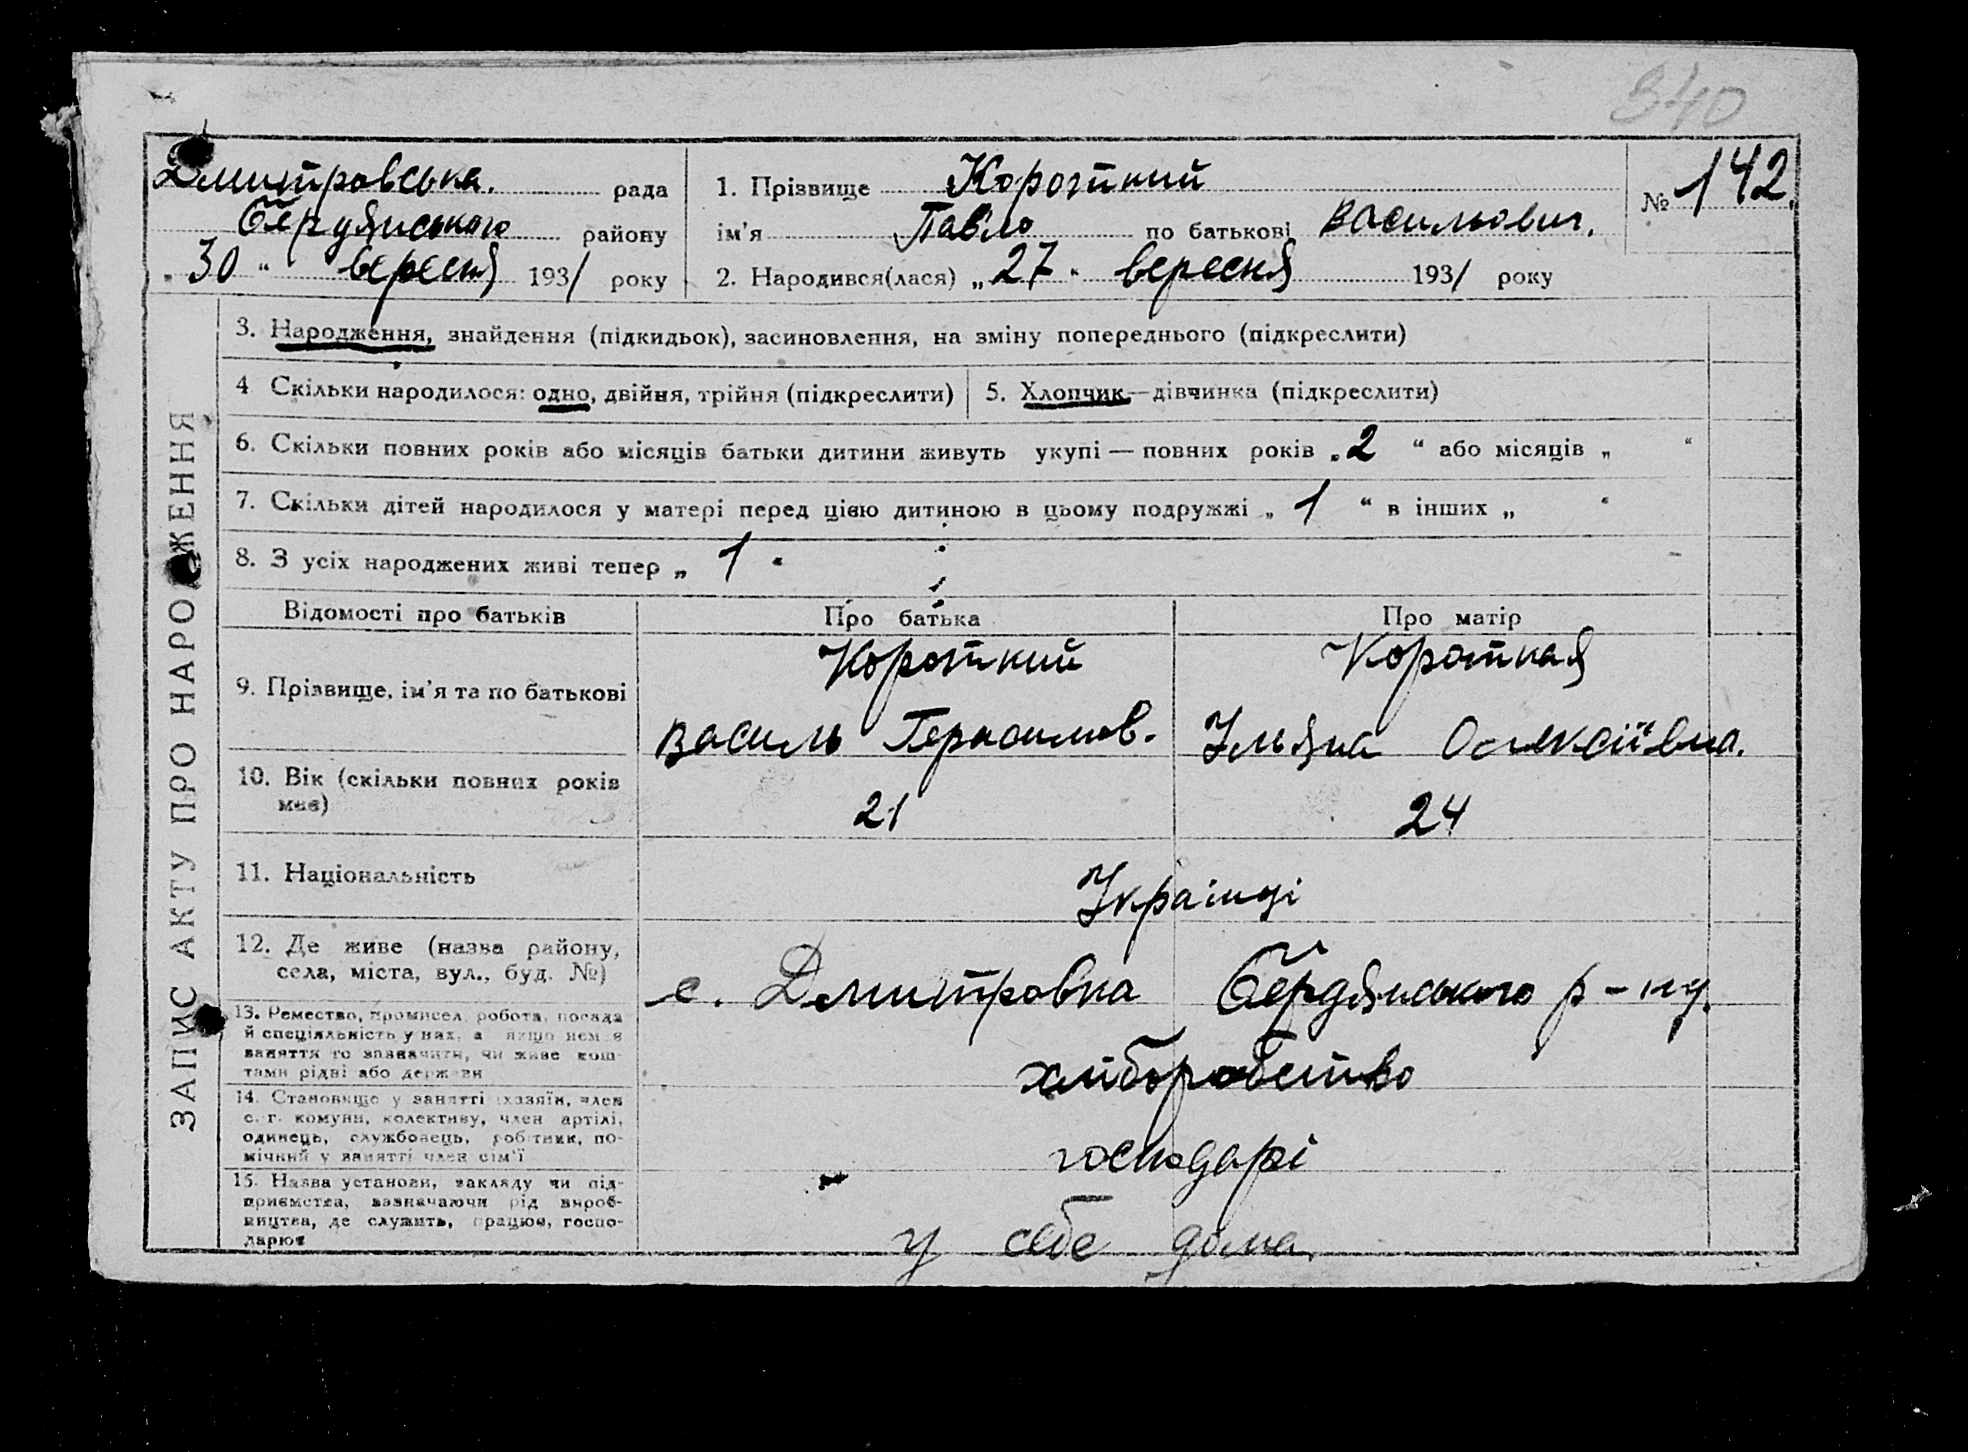 340
Дмитровська. рада
Бердянського району
„30“ вересня 1931 року
1. Прізвище Короткий
ім'я Павло по батькові Васильович.
№ 142.
2. Народився(лася) „27“ вересня 1931 року
ЗАПИС АКТУ ПРО НАРОДЖЕННЯ
3. Народження, знайдення (підкидьок), засиновлення, на зміну попереднього (підкреслити)
4 Скільки народилося: одно, двійня, трійня (підкреслити)
5. Хлопчик—дівчинка (підкреслити)
6. Скільки повних років або місяців батьки дитини живуть укупі — повних років „2“ або місяців „ “
7. Скільки дітей народилося у матері перед цією дитиною в цьому подружжі „1“ в інших „ “
8. З усіх народжених живі тепер „1“
Відомості про батьків
Про батька
Про матір
9. Прізвище, ім'я та по батькові
Короткий
Василь Герасимов.
Короткая
Ульяна Олексіївна.
10. Вік (скільки повних років
має)
21
24
11. Національність
Українці
12. Де живе (назва району,
села, міста, вул., буд. №)
с. Дмитровка Бердянського р-ну.
13. Ремество, промисел, робота, посада
й спеціяльність у них, а якщо нема
заняття то зазначити, чи живе кош-
тами рідні або держави
хліборобство
14. Становище у занятті (хазяїн, член
с. г. комуни, колективу, член артілі,
одинець, службовець, робітник, по-
мічний у занятті член сім'ї
господарі
15. Назва установи, закладу чи під-
приємства, зазначаючи рід вироб-
ництва, де служить, працює, госпо-
дарює
у себе дома.